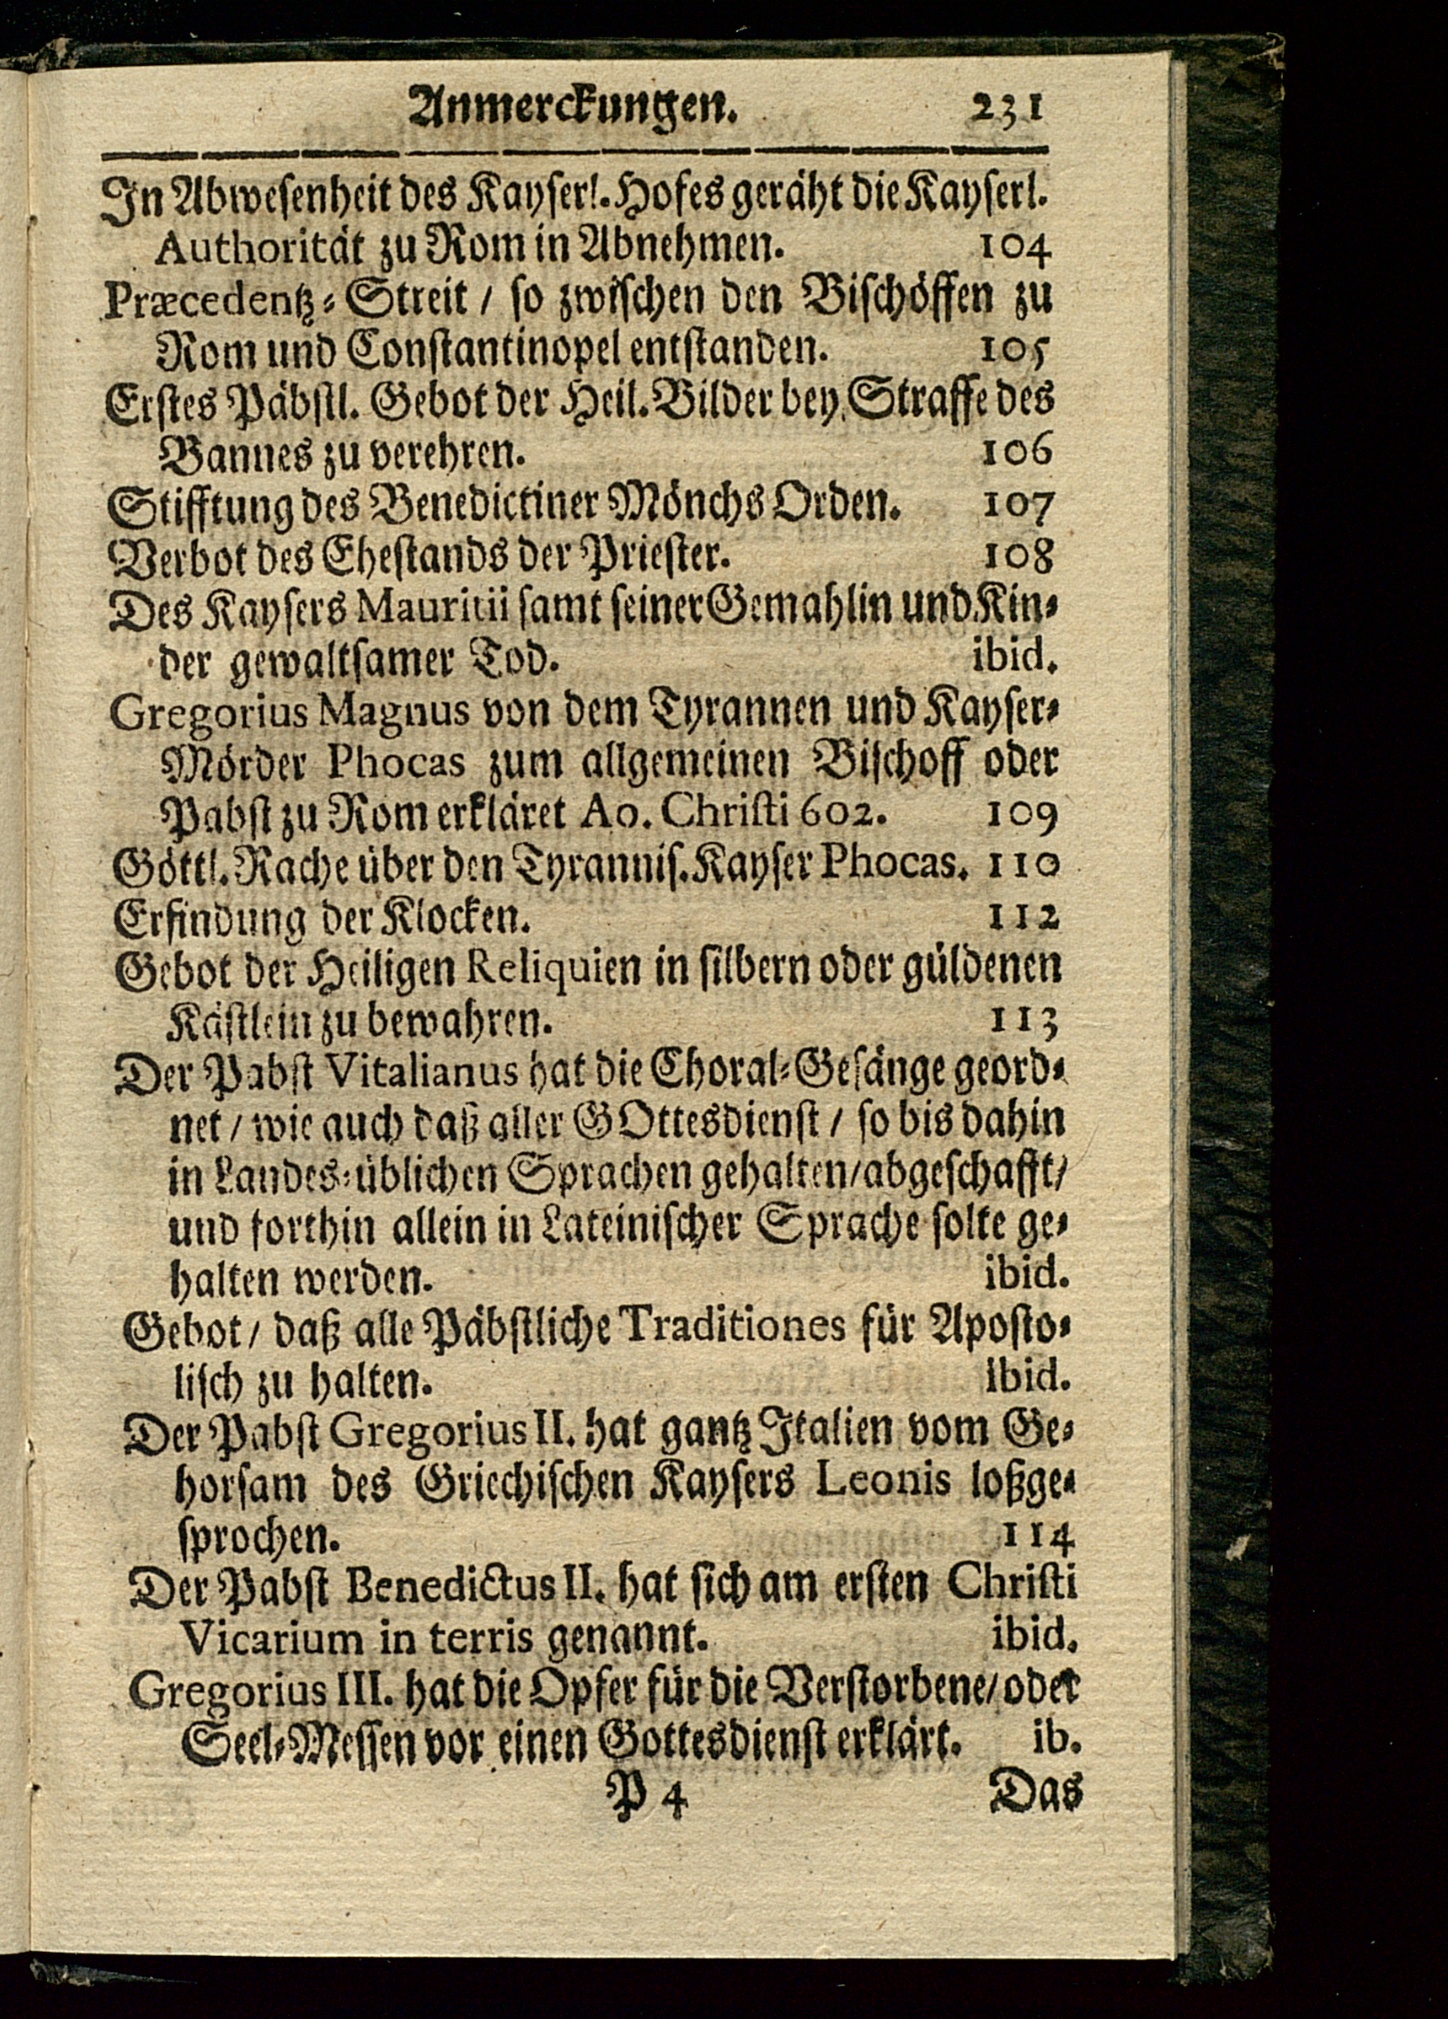 Anmerckungen. 231
In Abwesenheit des Kayserl. Hofes geräht die Kayserl.
Authorität zu Rom in Abnehmen. 104
Præcedentz-Streit / so zwischen den Bischöffen zu
Rom und Constantinopel entstanden. 105
Erstes Päbstl. Gebot der Heil. Bilder bey Straffe des
Bannes zu verehren. 106
Stifftung des Benedictiner Mönchs Orden. 107
Verbot des Ehestands der Priester. 108
Des Kaysers Mauritii samt seiner Gemahlin und Kin-
der gewaltsamer Tod. ibid.
Gregorius Magnus von dem Tyrannen und Kayser-
Mörder Phocas zum allgemeinen Bischoff oder
Pabst zu Rom erkläret Ao. Christi 602. 109
Göttl. Rache über den Tyrannis. Kayser Phocas. 110
Erfindung der Klocken. 112
Gebot der Heiligen Reliquien in silbern oder güldenen
Kästlein zu bewahren. 113
Der Pabst Vitalianus hat die Choral-Gesänge geord-
net / wie auch daß aller GOttesdienst / so bis dahin
in Landes-üblichen Sprachen gehalten / abgeschafft /
und forthin allein in Lateinischer Sprache solte ge-
halten werden. ibid.
Gebot / daß alle Päbstliche Traditiones für Aposto-
lisch zu halten. ibid.
Der Pabst Gregorius II. hat gantz Italien vom Ge-
horsam des Griechischen Kaysers Leonis loßge-
sprochen. 114
Der Pabst Benedictus II. hat sich am ersten Christi
Vicarium in terris genannt. ibid.
Gregorius III. hat die Opfer für die Verstorbene / oder
Seel-Messen vor einen Gottesdienst erklärt. ib.
P 4 Das